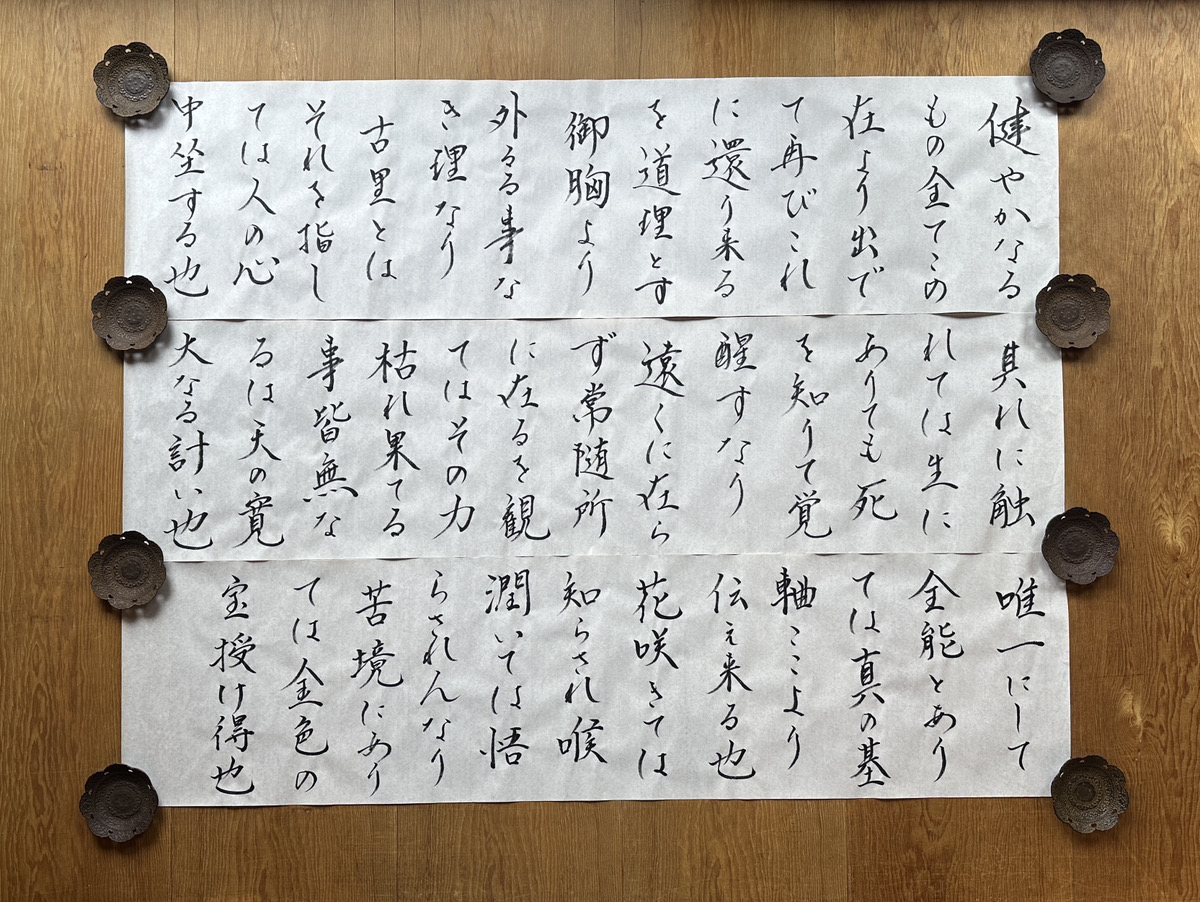 健やかなる
もの全てこの
在より出で
て再びこれ
に還り来る
を道理とす
御胸より
外るる事な
き理なり
古里とは
それを指し
ては人の心
中坐する也
其れに触
れては生に
ありても死
を知りて覚
醒すなり
遠くに在ら
ず常随所
に在るを観
てはその力
枯れ果てる
事皆無な
るは天の寛
大なる計い也
唯一にして
全能とあり
ては真の基
軸ここより
伝え来る也
花咲きては
知らされ喉
潤いては悟
らされんなり
苦境にあり
ては金色の
宝授け得也